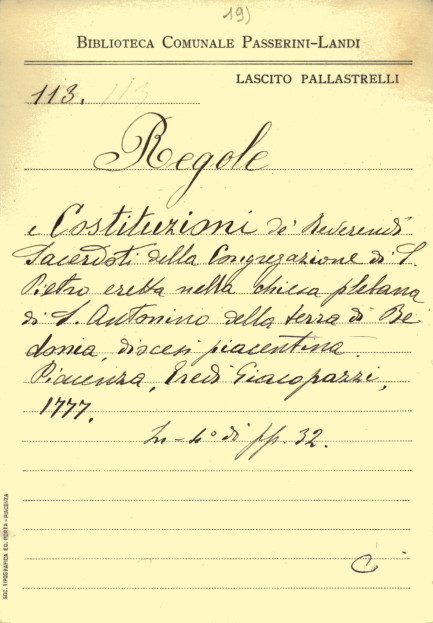 19)
BIBLIOTECA COMUNALE PASSERINI-LANDI
LASCITO PALLASTRELLI
113. 113
Regole
e Costituzioni de' Reverendi
Sacerdoti della Congregazione di S.
Pietro eretta nella chiesa plebana
di S. Antonino della terra di Be
donia, diocesi piacentina.
Piacenza, Eredi Giacopazzi,
1777.
In-4° di pp. 32.
SOC. TIPOGRAFICA ED. PORTA-PIACENZA